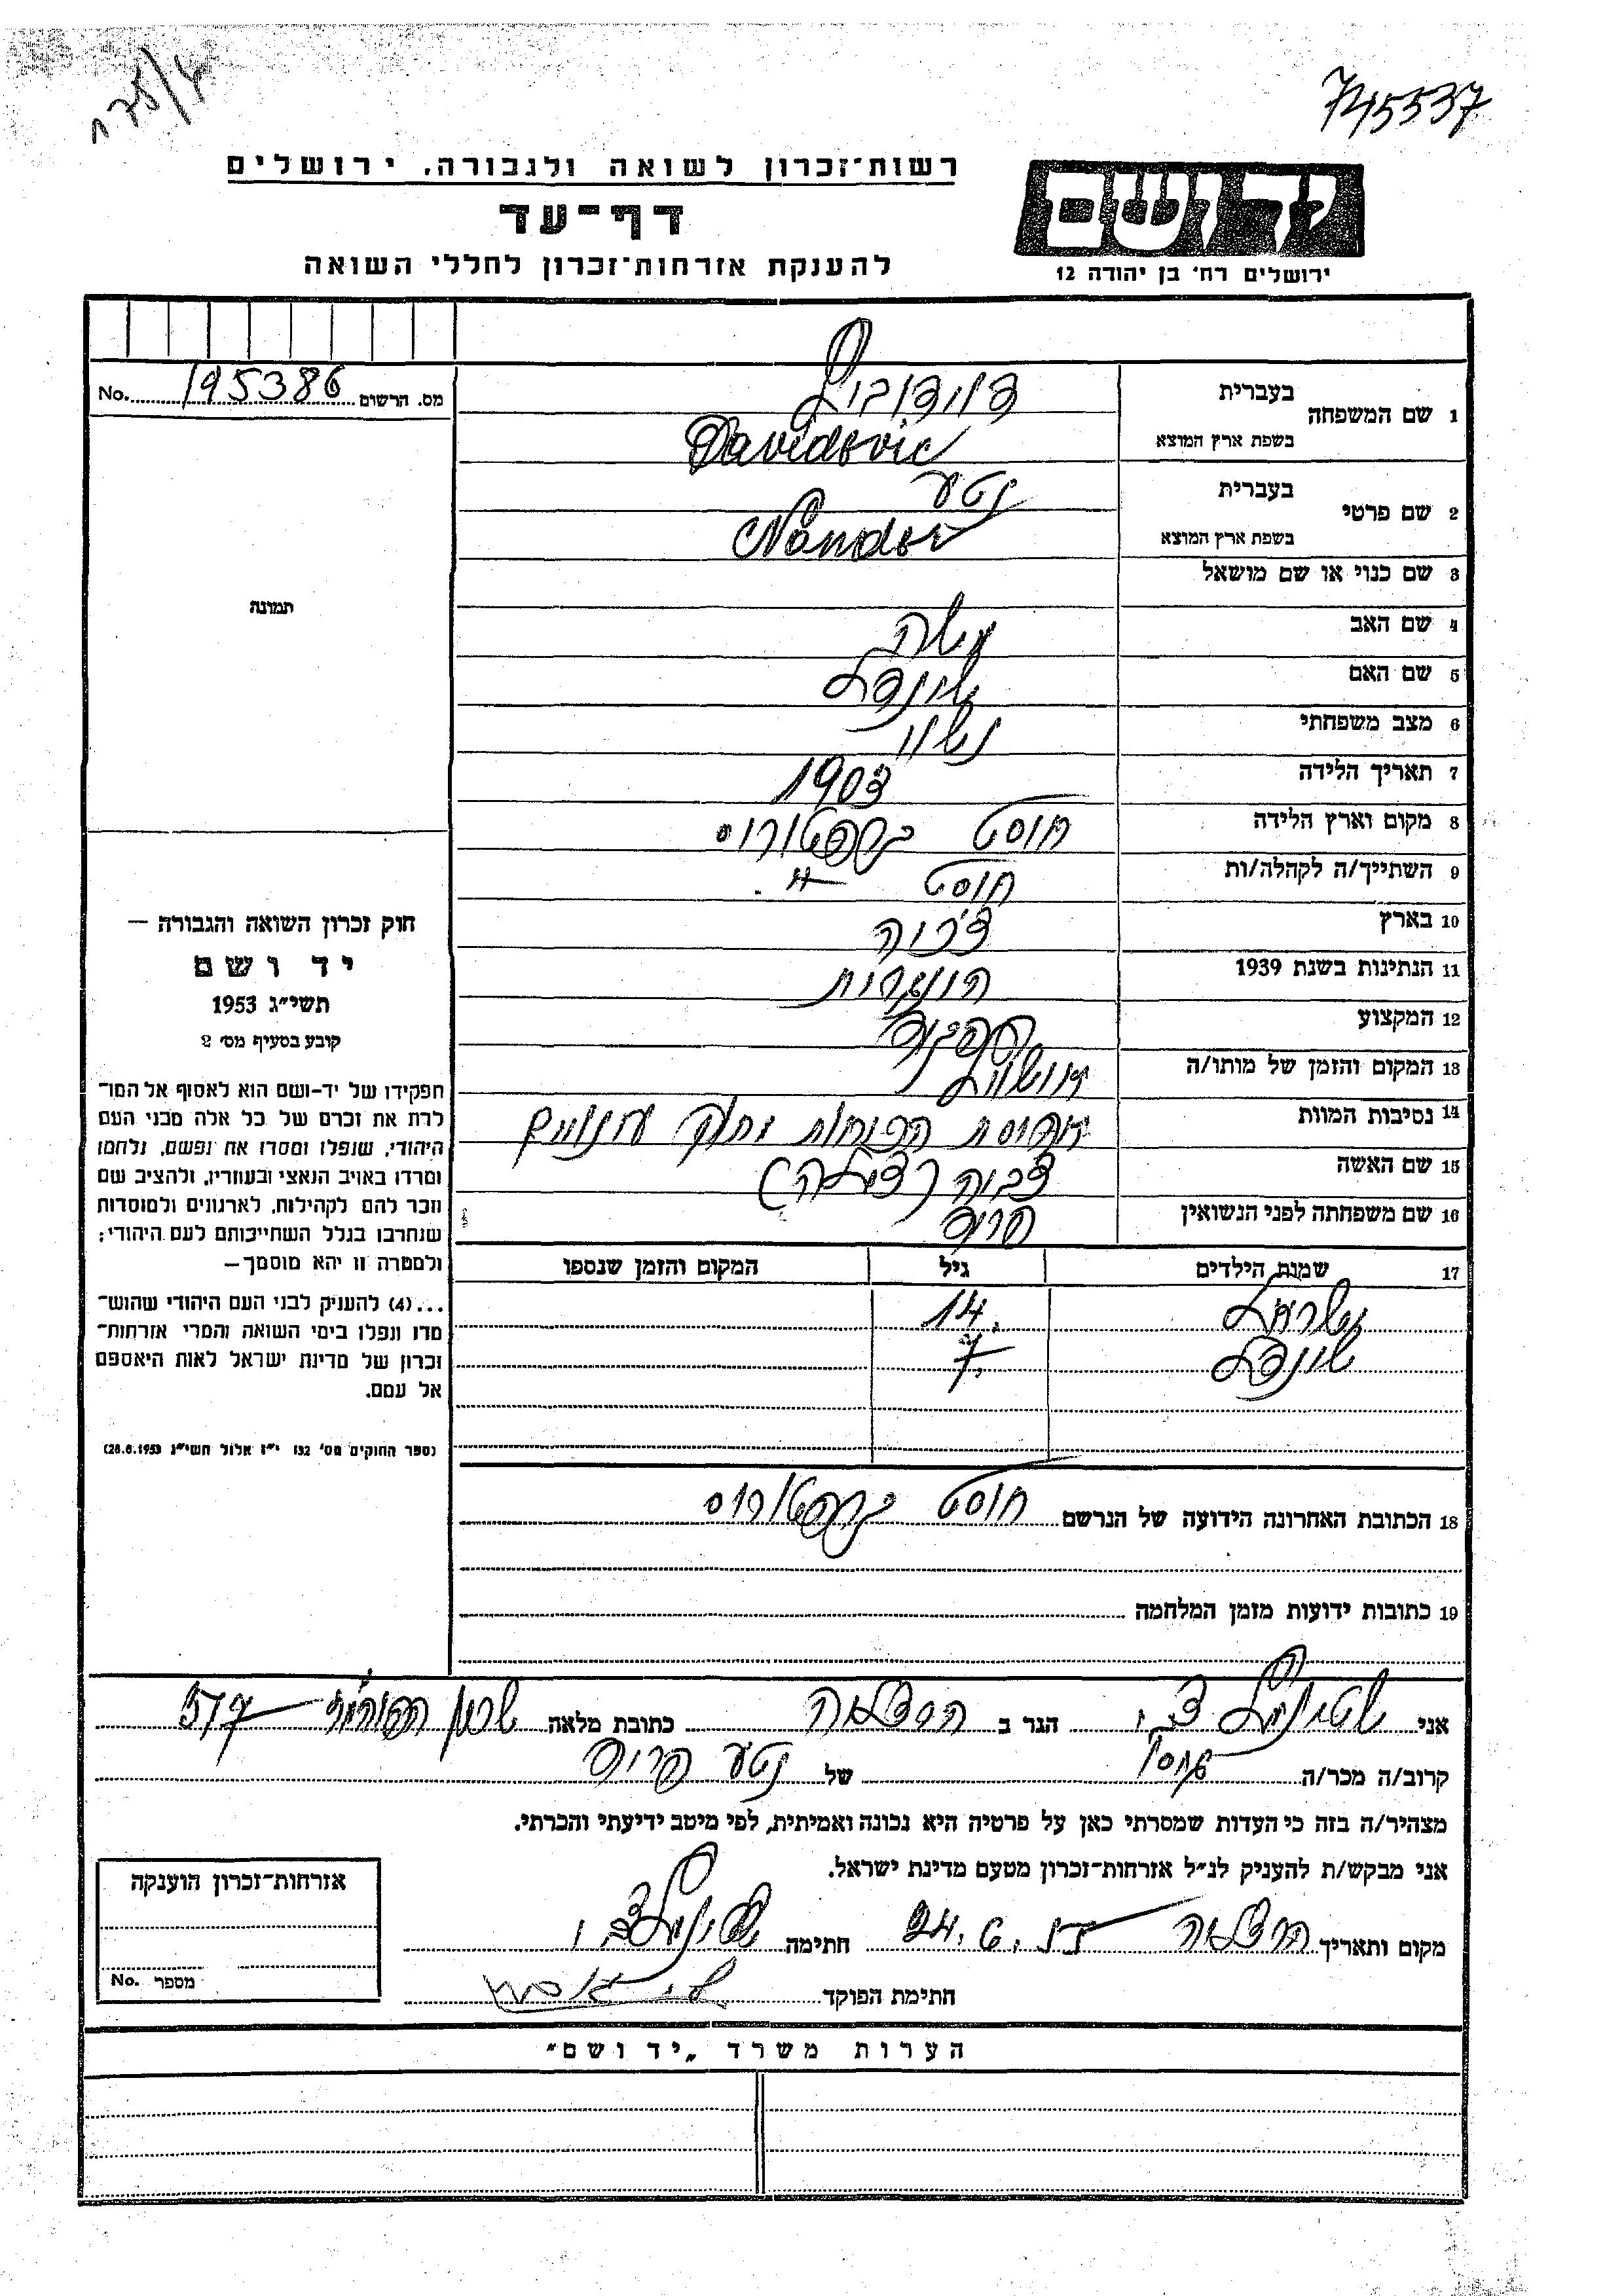 745537
רשות־זכרון לשואה ולגבורה, ירושלים
יד ושם
דף־עד
להענקת אזרחות־זכרון לחללי השואה
ירושלים רח' בן יהודה 12
מס. הרשום 195386 No.
1 שם המשפחה
בעברית דוידוביץ
בשפת ארץ המוצא Davidovic
2 שם פרטי
בעברית נטע
בשפת ארץ המוצא Nandor
3 שם כנוי או שם מושאל
4 שם האב משה
5 שם האם שיינדל
6 מצב משפחתי נשוי
7 תאריך הלידה 1903
8 מקום וארץ הלידה חוסט קרפטורוס
9 השתייך/ה לקהלה/ות חוסט —"—
10 בארץ צ'כיה
11 הנתינות בשנת 1939 הונגרית
12 המקצוע
13 המקום והזמן של מותו/ה
14 נסיבות המוות מחוסר
15 שם האשה צביה (צילה)
16 שם משפחתה לפני הנשואין
17 שמות הילדים גיל המקום והזמן שנספו
ישראל 14.
שיינדל 7.
18 הכתובת האחרונה הידועה של הנרשם חוסט קרפטורוס
19 כתובות ידועות מזמן המלחמה
תמונה
חוק זכרון השואה והגבורה —
יד ושם
תשי״ג 1953
קובע בסעיף מס׳ 2
תפקידו של יד-ושם הוא לאסוף אל המו־
לדת את זכרם של כל אלה מבני העם
היהודי, שנפלו ומסרו את נפשם, נלחמו
ומרדו באויב הנאצי ובעוזריו, ולהציב שם
וזכר להם לקהילות, לארגונים ולמוסדות
שנחרבו בגלל השתייכותם לעם היהודי;
ולמטרה זו יהא מוסמך—
...(4) להעניק לבני העם היהודי שהוש־
מדו ונפלו בימי השואה והמרי אזרחות־
זכרון של מדינת ישראל לאות היאספם
אל עמם.
(ספר החוקים מס׳ 132 י״ז אלול תשי״ג 28.8.1953)
אני הגר ב הרצליה כתובת מלאה שכון 517
קרוב/ה מכר/ה של נטע
מצהיר/ה בזה כי העדות שמסרתי כאן על פרטיה היא נכונה ואמיתית, לפי מיטב ידיעתי והכרתי.
אני מבקש/ת להעניק לנ״ל אזרחות־זכרון מטעם מדינת ישראל.
מקום ותאריך הרצליה 24.6.55 חתימה
חתימת הפוקד
אזרחות־זכרון הוענקה
מספר No.
הערות משרד „יד ושם״